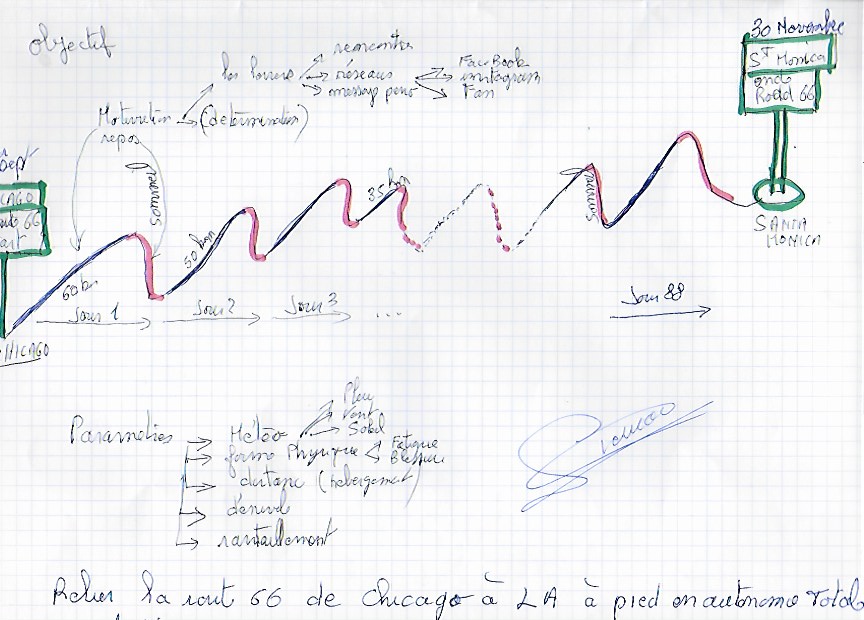 objectif
30 Novembre
St Monica
end
Road 66
rencontre
réseaux
message pour
FaceBook
instagram
Fan
Motivation
repos
(détermination)
Sept
CAGO
66
art
60 km
50 km
35 km
SANTA
MONICA
Jour 1
Jour 2
Jour 3
...
Jour 88
CHICAGO
Parametres
Météo
Pluie
Vent
Soleil
forme Physique
Fatigue
Blessure
distance (hébergement)
dénivelé
ravitaillement
Relier la rout 66 de Chicago à LA à pied en autonomie Total